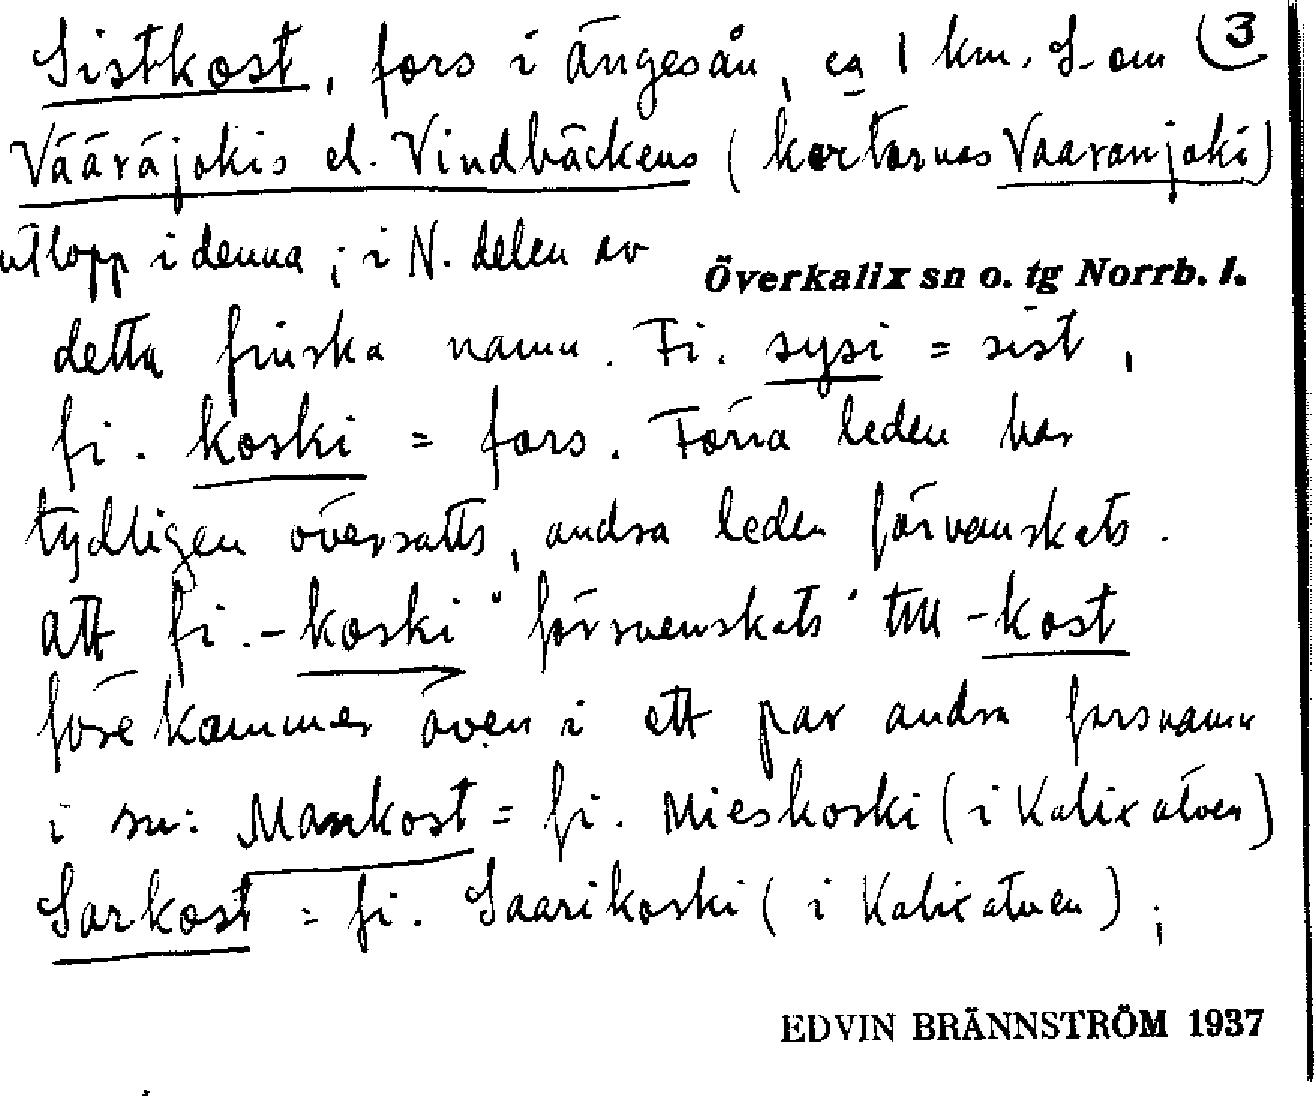 Sistkost, fors i Ängesån, ca 1 km. S. om 3
Vääräjokis el. Vindbäckens (kartornas Vaaranjoki)
utlopp i denna; i N. delen av
Överkalix sn o. tg Norrb. l.
detta finska namn. Fi. sysi = sist,
fi. koski = fors. Förra leden har
tydligen översatts, andra leden förvanskats.
Att fi. -koski "försvenskats" till -kost
förekommer även i ett par andra forsnamn
i sn: Mankost = fi. Mieskoski (i Kalix älven)
Sarkost = fi. Saarikoski (i Kalix älven);
EDVIN BRÄNNSTRÖM 1937